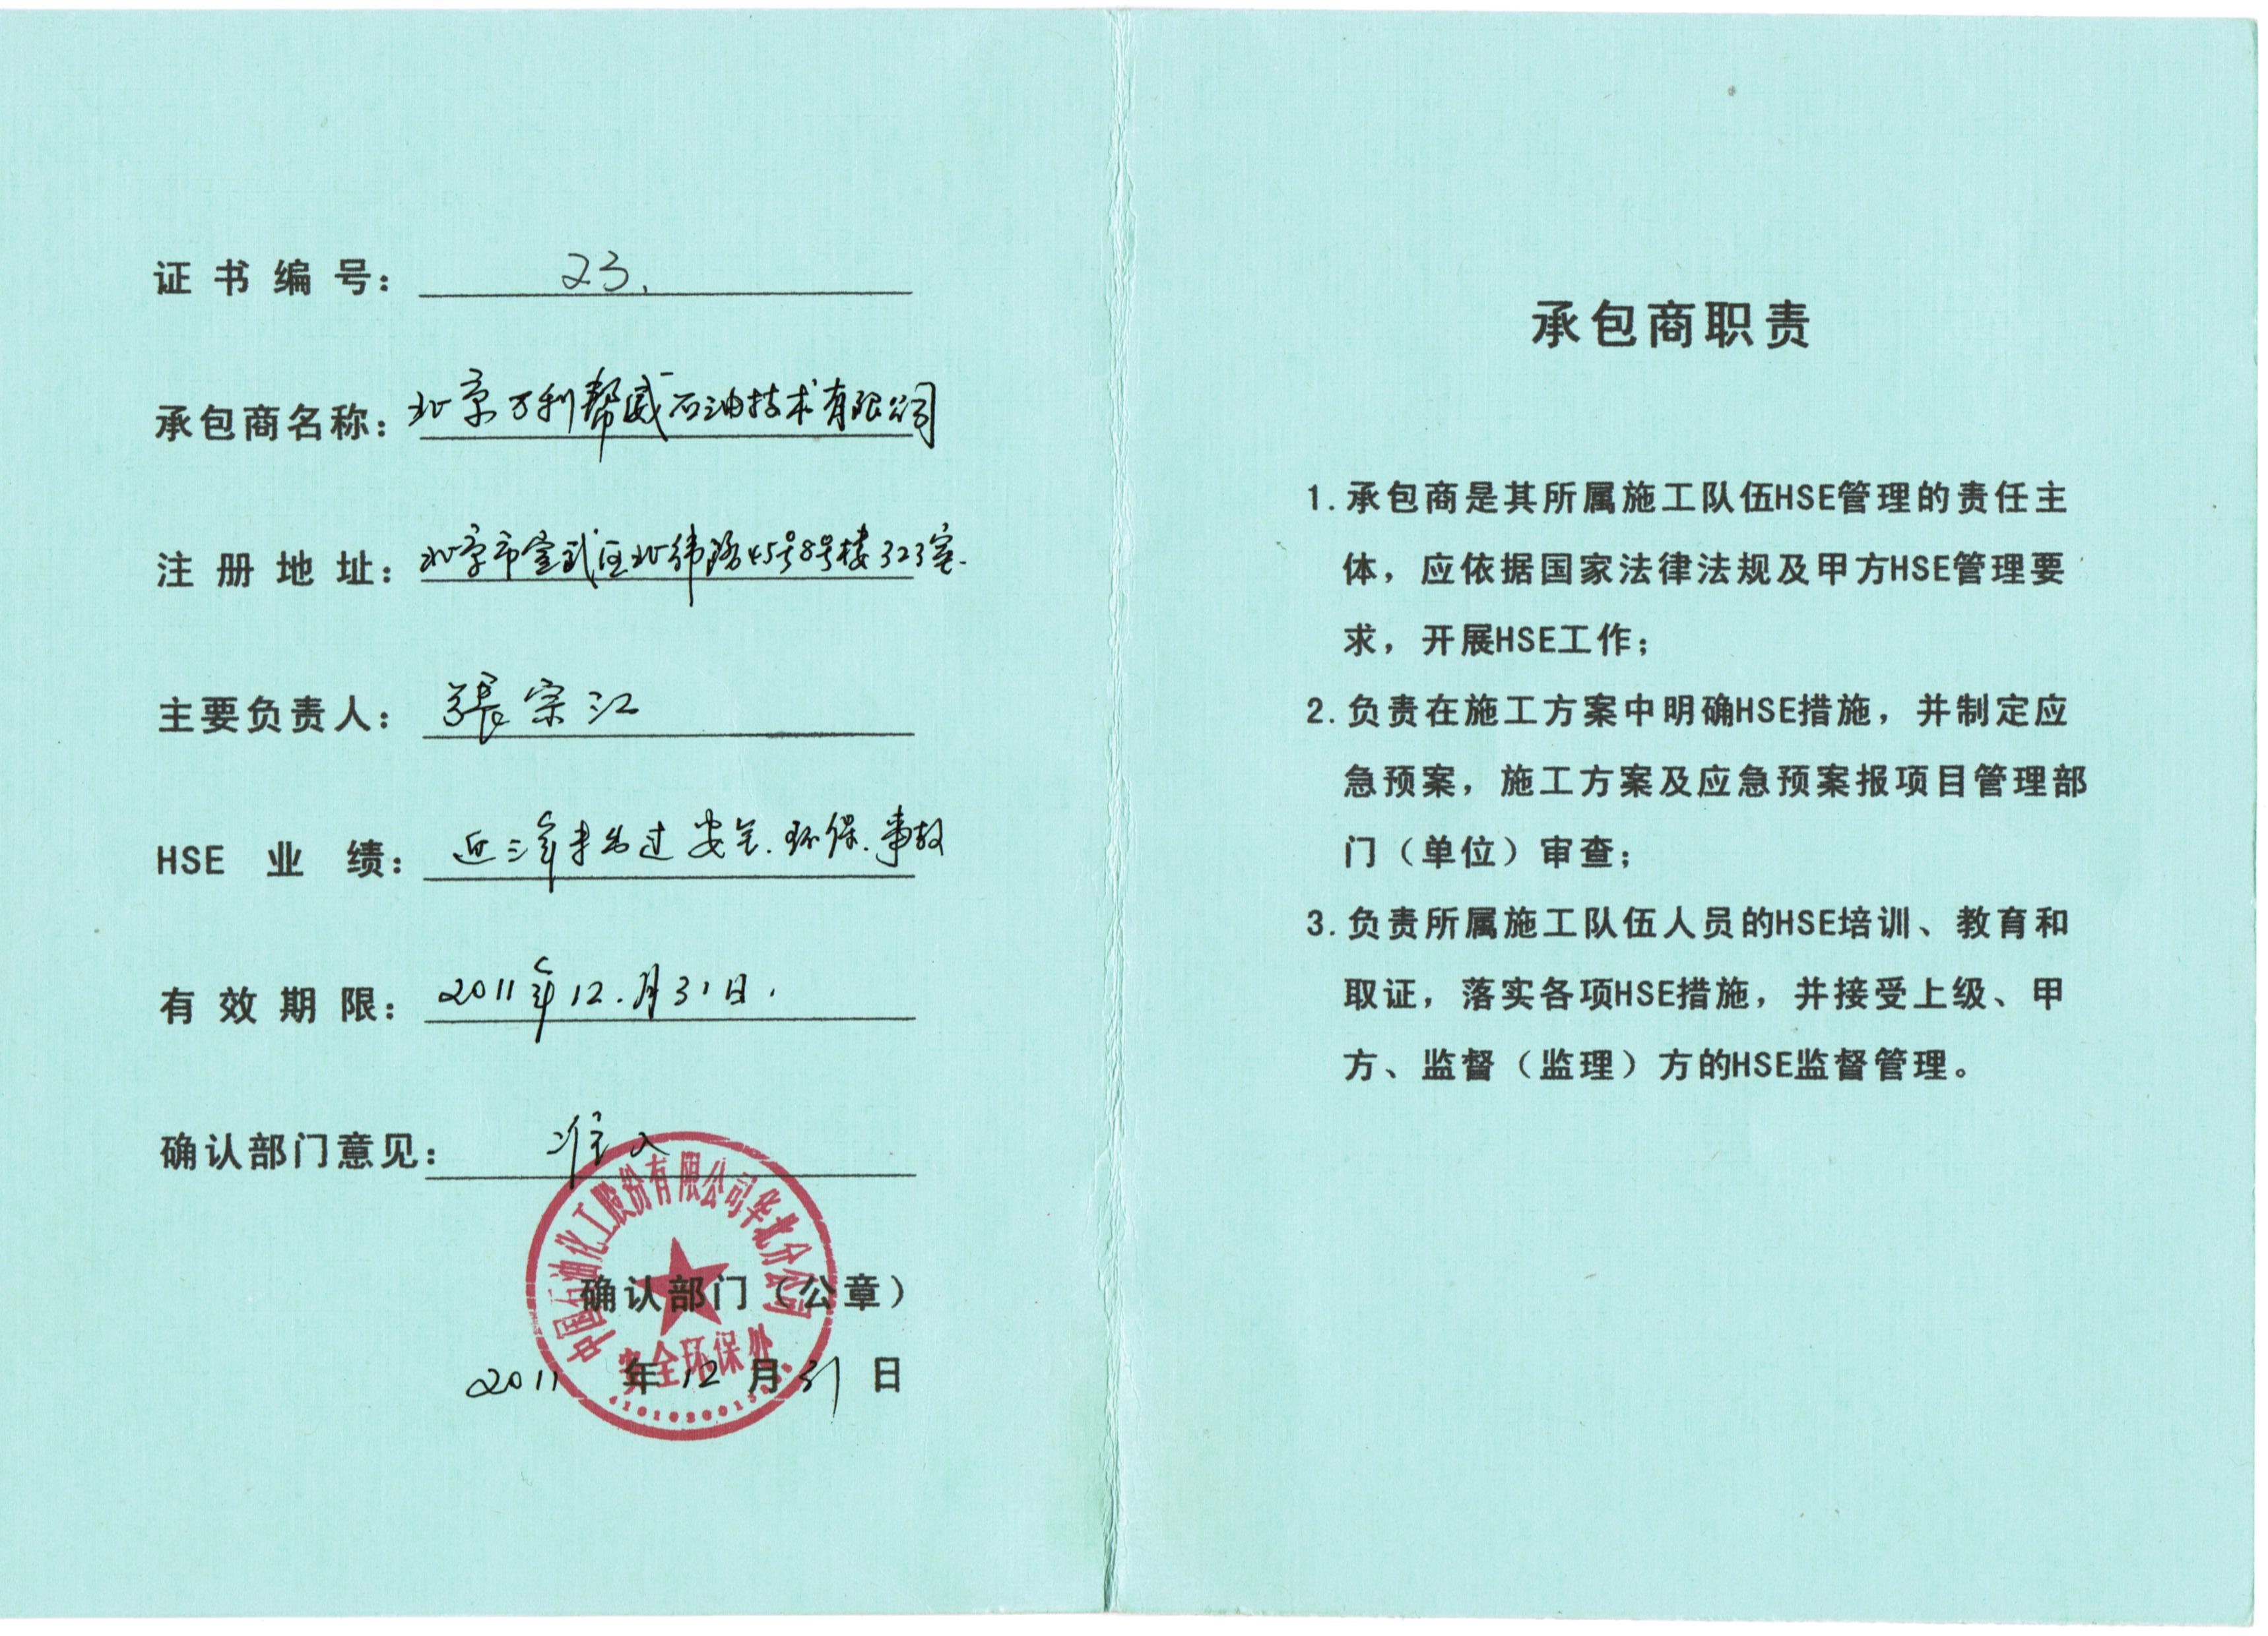 证书编号: 23.
承包商名称: 北京万利帮威石油技术有限公司
注册地址: 北京市宣武区北纬路45号8号楼323室.
主要负责人: 張宗江
HSE 业 绩: 近三年未出过安全.环保.事故
有效期限: 2011年12.月31日.
确认部门意见: 准入
中国石油化工股份有限公司华北分公司
确认部门（公章）
安全环保处
2011 年 12 月 31 日
承包商职责
1.承包商是其所属施工队伍HSE管理的责任主
体，应依据国家法律法规及甲方HSE管理要
求，开展HSE工作；
2.负责在施工方案中明确HSE措施，并制定应
急预案，施工方案及应急预案报项目管理部
门（单位）审查；
3.负责所属施工队伍人员的HSE培训、教育和
取证，落实各项HSE措施，并接受上级、甲
方、监督（监理）方的HSE监督管理。